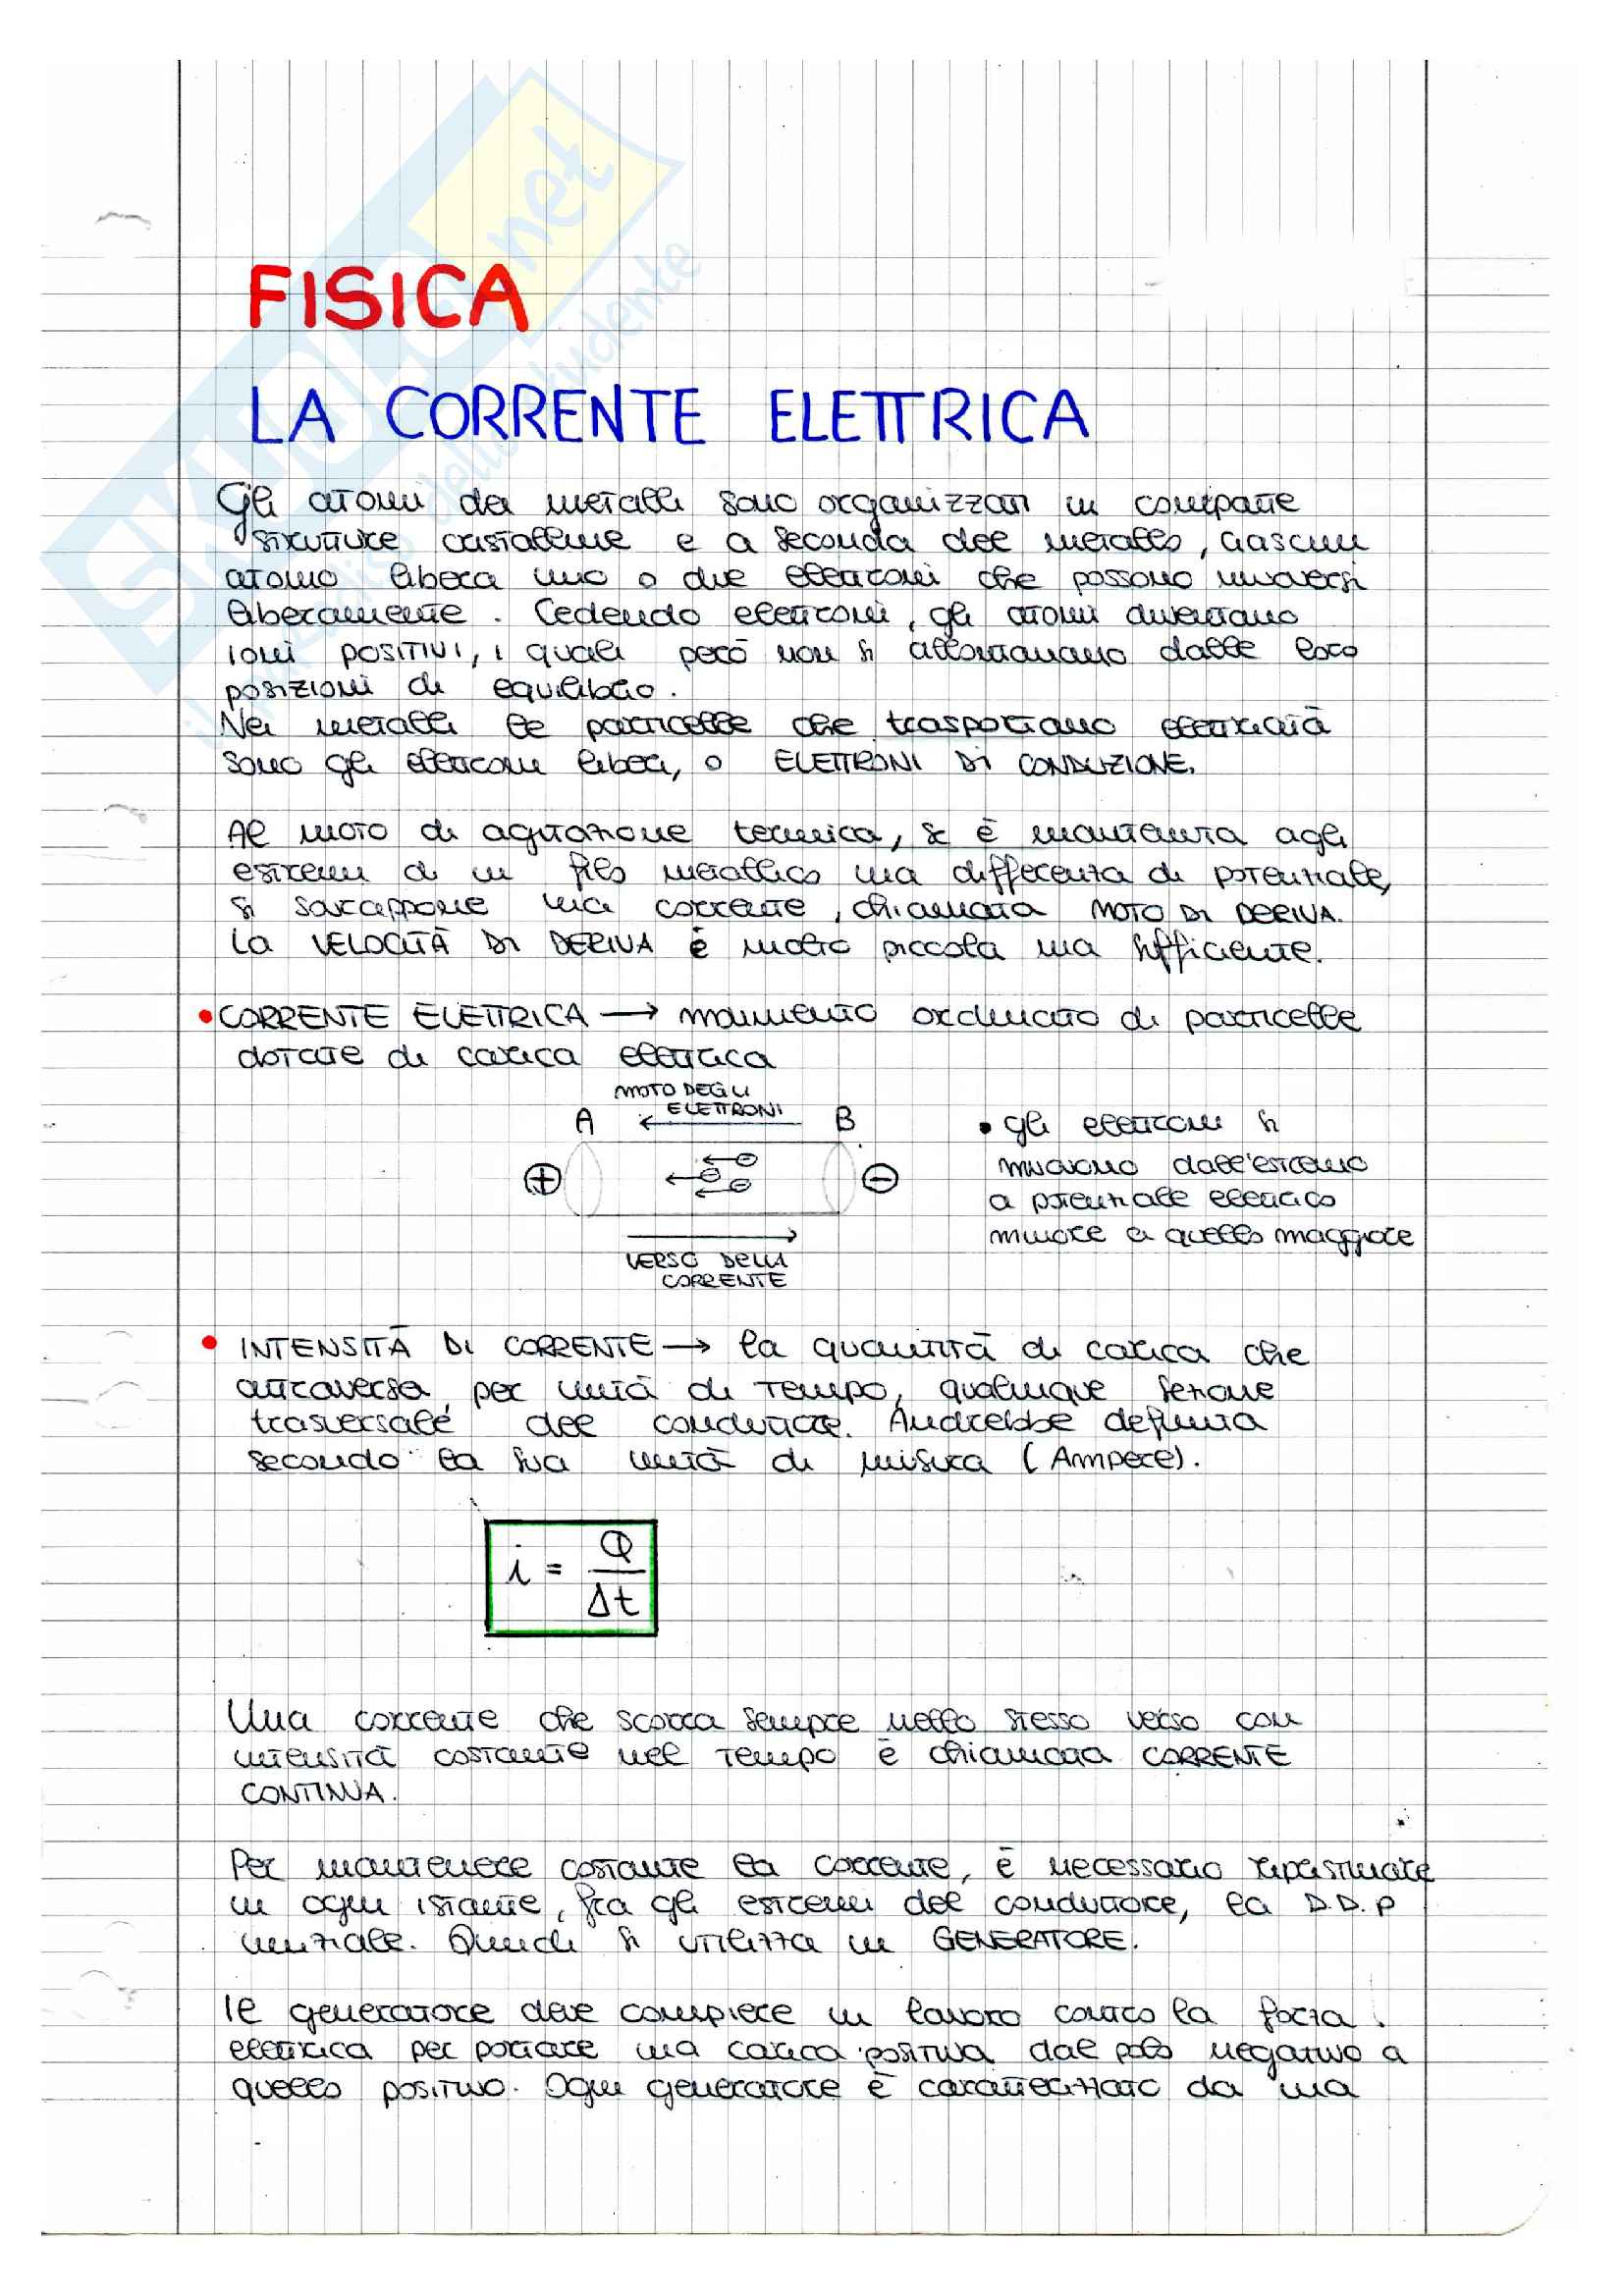 FISICA
LA CORRENTE ELETTRICA
Gli atomi dei metalli sono organizzati in compatte
strutture cristalline e a seconda del metallo, ciascun
atomo libera uno o due elettroni che possono muoversi
liberamente. Cedendo elettroni, gli atomi diventano
ioni positivi, i quali però non si allontanano dalle loro
posizioni di equilibrio.
Nei metalli le particelle che trasportano elettricità
sono gli elettroni liberi, o ELETTRONI DI CONDUZIONE.
Al moto di agitazione termica, se è mantenuta agli
estremi di un filo metallico una differenza di potenziale,
si sovrappone una corrente, chiamata MOTO DI DERIVA.
La VELOCITÀ DI DERIVA è molto piccola ma sufficiente.
• CORRENTE ELETTRICA → movimento ordinato di particelle
dotate di carica elettrica
MOTO DEGLI
ELETTRONI
A B
+ -
VERSO DELLA
CORRENTE
• gli elettroni si
muovono dall'estremo
a potenziale elettrico
minore a quello maggiore
• INTENSITÀ DI CORRENTE → la quantità di carica che
attraversa, per unità di tempo, qualunque sezione
trasversale del conduttore. Andrebbe definita
secondo la sua unità di misura (Ampere).
i = Q/Δt
Una corrente che scorra sempre nello stesso verso con
intensità costante nel tempo è chiamata CORRENTE
CONTINUA.
Per mantenere costante la corrente, è necessario ripristinare
in ogni istante, fra gli estremi del conduttore, la D.D.P
iniziale. Quindi si utilizza un GENERATORE.
Il generatore deve compiere un lavoro contro la forza
elettrica per portare una carica positiva dal polo negativo a
quello positivo. Ogni generatore è caratterizzato da una